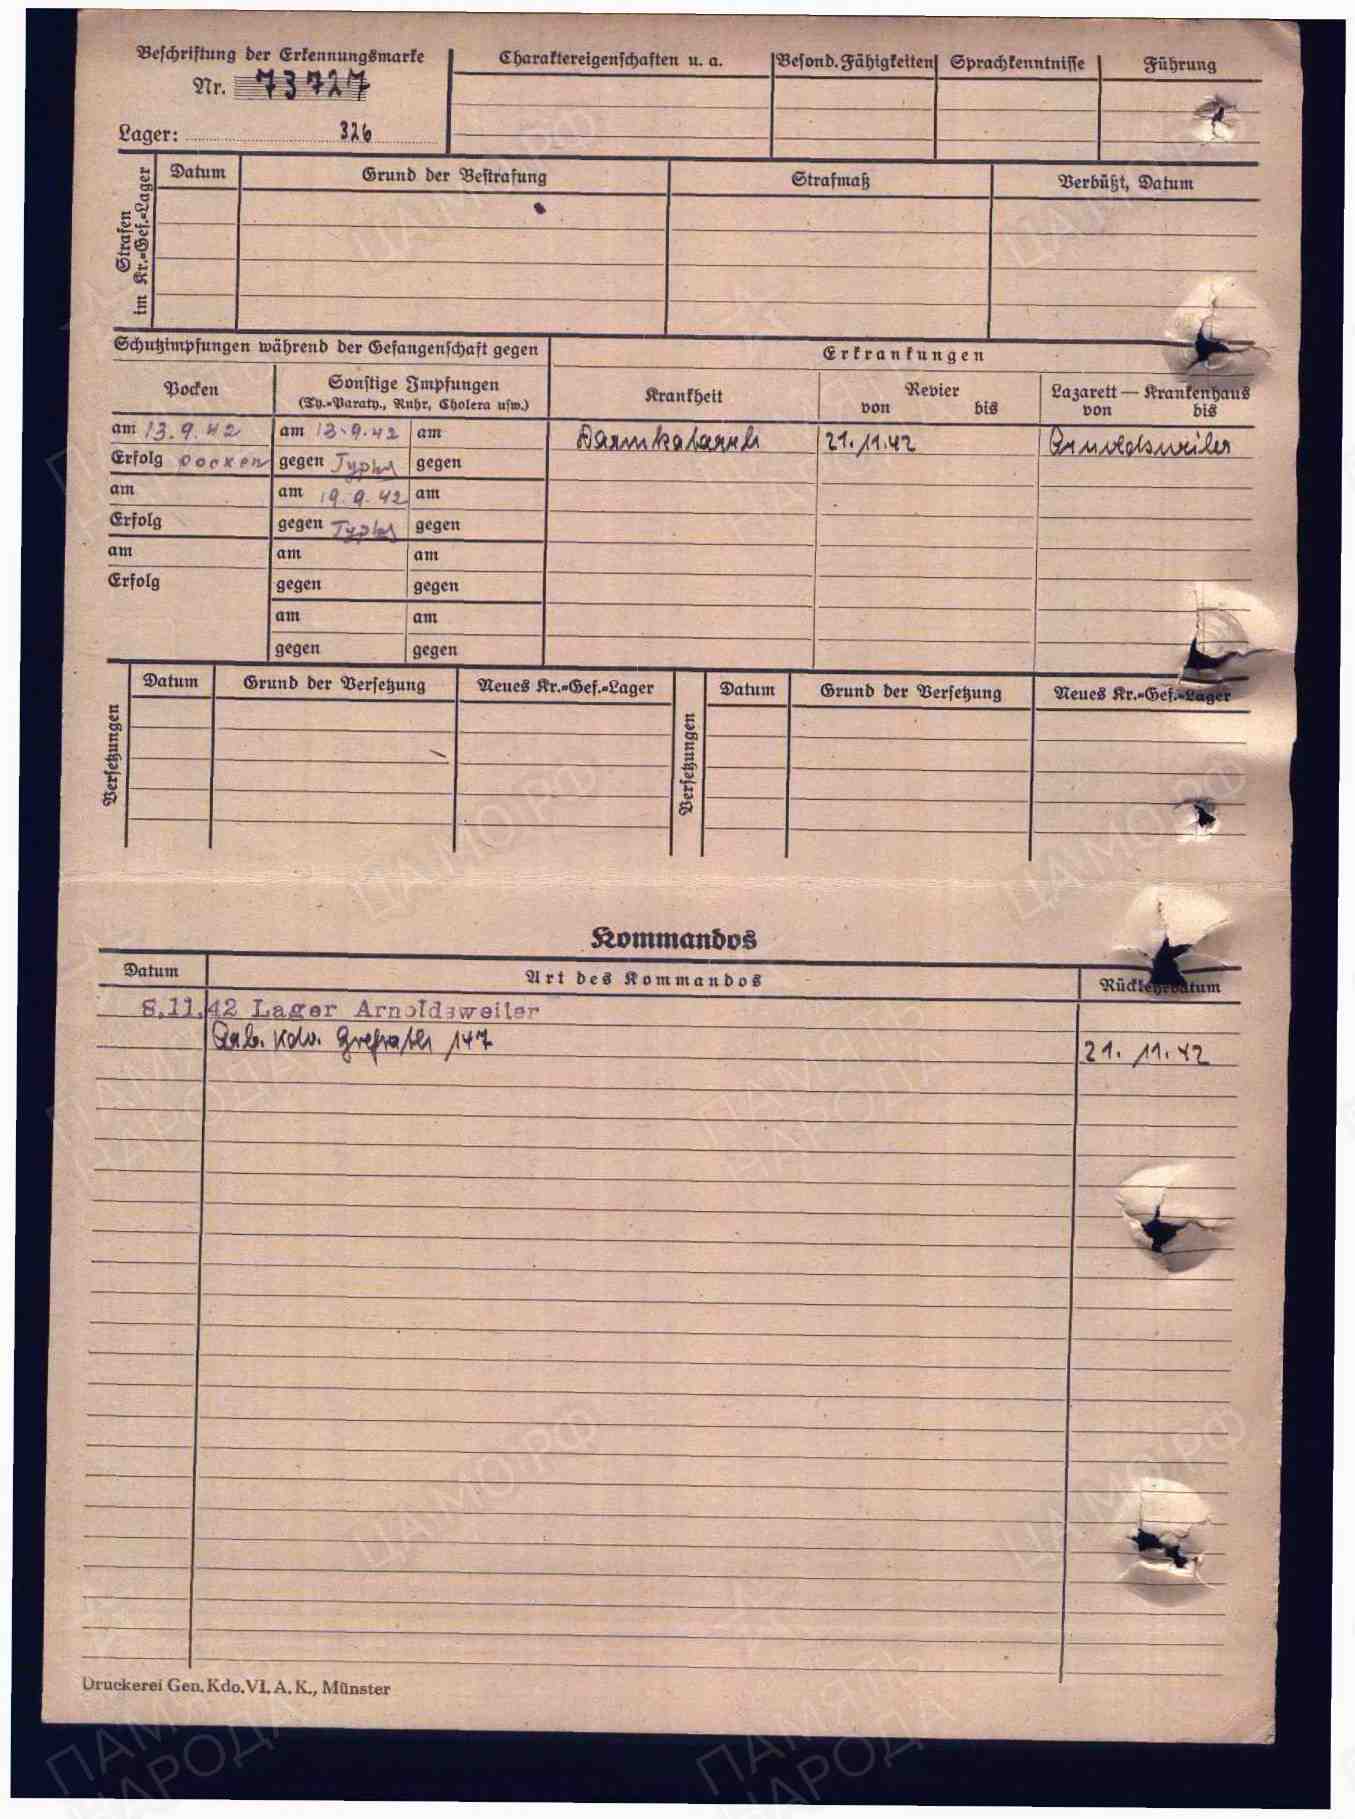 Beschriftung der Erkennungsmarke
Nr. 73727
Lager: 326
Charaktereigenschaften u. a.
Besond. Fähigkeiten
Sprachkenntnisse
Führung
Strafen
im Kr.-Gef.-Lager
Datum
Grund der Bestrafung
Strafmaß
Verbüßt, Datum
Schutzimpfungen während der Gefangenschaft gegen
Erkrankungen
Pocken
Sonstige Impfungen
(Ty.-Paraty., Ruhr, Cholera usw.)
Krankheit
Revier
von bis
Lazarett — Krankenhaus
von bis
am 13.9.42 am 13.9.42 am
Darmkatarrh 21.11.42 Arnoldsweiler
Erfolg Pocken gegen Typhus gegen
am am 19.9.42 am
Erfolg gegen Typhus gegen
am am am
Erfolg gegen gegen
am am
gegen gegen
Versetzungen
Datum
Grund der Versetzung
Neues Kr.-Gef.-Lager
Versetzungen
Datum
Grund der Versetzung
Neues Kr.-Gef.-Lager
Kommandos
Datum
Art des Kommandos
Rückkehrdatum
8.11.42 Lager Arnoldsweiler
Arb. Kdo. Grefrath 147 21.11.42
Druckerei Gen. Kdo. VI. A. K., Münster
ЦАМО.РФ
ПАМЯТЬ
НАРОДА